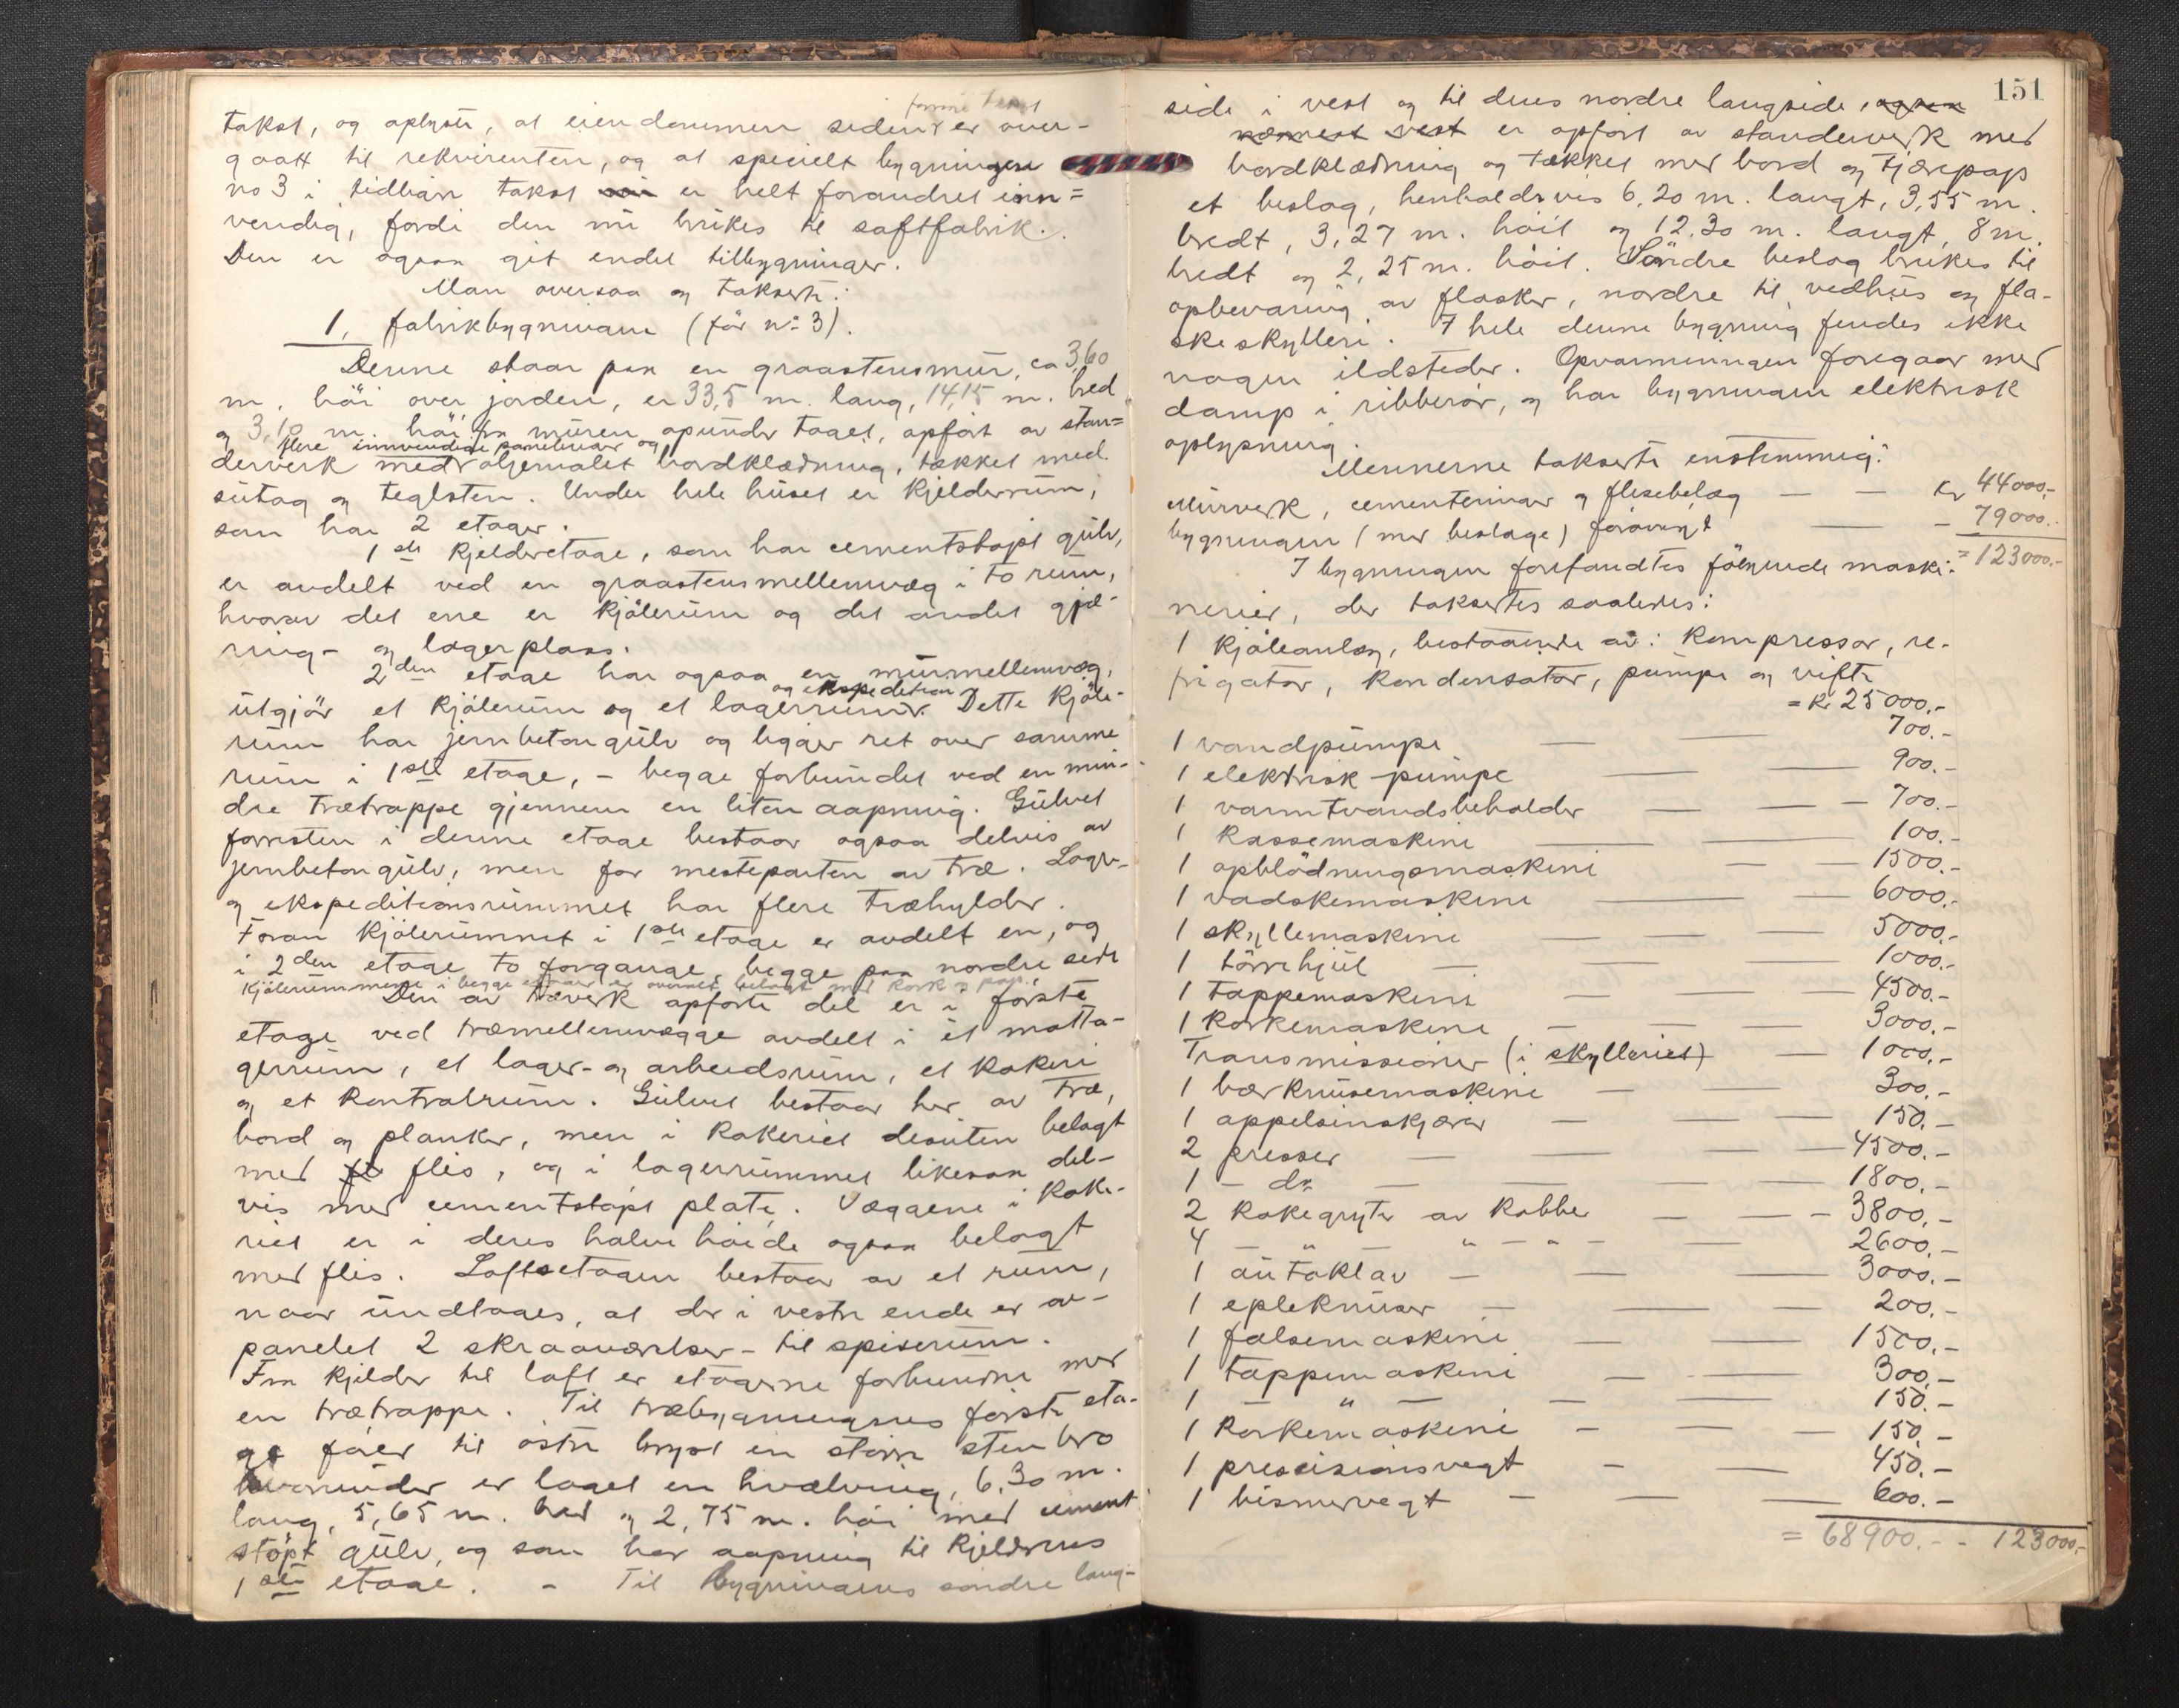 forrige takst
takst, og oplyste, at eiendommen siden er over-
gaatt til rekvirenten, og at specielt bygningen
no 3 i tidligere takst er helt forandret inn=
vendig, fordi den nu brukes til saftfabrik.
Den er ogsaa git endel tilbygninger.
Man oversaa og takserte:
1, fabrikbygningen (før no 3).
Denne staar paa en graastensmur, ca 3,60
m. høi over jorden, er 33,5 m. lang, 14,15 m. bred
og 3,10 m. høi fra muren opunder taget, opført av stan=
flere innvendige panelinger og
derverk med oljemalet bordklædning, tækket med
sutag og teglsten. Under hele huset er kjelderrum,
som har 2 etager.
1ste kjelderetage, som har cementstøpt gulv,
er avdelt ved en graastensmellemvæg i to rum,
hvorav det ene er kjølerum og det andet gjæ-
ring- og lagerplass.
2den etage har ogsaa en murmellemvæg,
og ekspedition
utgjør et kjølerum og et lagerrum. Dette kjøle-
rum har jernbetongulv og ligger ret over samme
rum i 1ste etage, – begge forbundet ved en min-
dre trætrappe gjennem en liten aapning. Gulvet
forresten i denne etage bestaar ogsaa delvis av
jernbetongulv, men for mesteparten av træ. Lager-
og ekspeditionsrummet har flere træhylder.
Foran kjølerummet i 1ste etage er avdelt en, og
i 2den etage to forgange, begge paa nordre side
Kjølerummene i begge etager er overalt belagt med kork & papp.
Den av træverk opførte del er i første
etage ved træmellemvægge avdelt i et motta-
gerrum, et lager- og arbeidsrum, et kokeri
og et kontrolrum. Gulvet bestaar her av træ,
bord og planker, men i kokeriet desuten belagt
med flis, og i lagerrummet likesaa del-
vis med cementstøpt plate. Væggene i koke-
riet er i deres halve høide ogsaa belagt
med flis. Loftsetagen bestaar av et rum,
naar undtages, at der i vestre ende er av-
panelet 2 skraaværelser – til spiserum.
Fra kjelder til loft er etagerne forbundne med
en trætrappe. Til træbygningens første eta-
ge fører til østre bryst en større stenbro
hvorunder er laget en hvælving, 6,30 m.
lang, 5,65 m. bred og 2,75 m. høi med cement
støpt gulv, og som har aapning til kjelderens
1ste etage. – Til bygningens søndre lang-
151
side i vest og til dens nordre langside, ogsaa
nærmest vest er opført av standerverk med
bordklædning og tækket med bord og tjærepap
et beslag, henholdsvis 6,20 m. langt, 3,55 m.
bredt, 3,27 m. høit og 12,30 m. langt, 8 m.
bredt og 2,25 m. høit. Søndre beslag brukes til
opbevaring av flasker, nordre til vedhus og fla-
skeskylleri. I hele denne bygning findes ikke
nogen ildsteder. Opvarmningen foregaar med
damp i ribberør, og har bygningen elektrisk
oplysning.
Mennerne takserte enstemmig:
Murverk, cementeringer og flisebelæg — — Kr 44000,-
bygningen (med beslage) forøvrigt — - 79000.-
= 123000.-
I bygningen forefandtes følgende maski-
nerier, der takseres saaledes:
1 kjøleanlæg, bestaaende av: Kompressor, re-
frigator, kondensator, pumpe og vifte
= Kr 25000.-
1 vandpumpe — — 700.-
1 elektrisk pumpe — — 900.-
1 varmtvandsbeholder — — — 700.-
1 kassemaskine — — — 100.-
1 opblødningsmaskine — — 1500.-
1 vaskemaskine — — — 6000.-
1 skyllemaskine — — — 5000.-
1 tørrehjul — — — 1000.-
1 tappemaskine — — — 4500.-
1 korkemaskine — — — 3000.-
Transmissioner (i skylleriet) — 1000.-
1 bærknusemaskine — — 300.-
1 appelsinskjærer — — — 150.-
2 presser — — — 4500.-
1 – do — — — 1800.-
2 kokegryter av kobber — — - 3800.-
4 — " — " - " - — 2600.-
1 autoklav — — — 3000.-
1 epleknuser — — — 200.-
1 falsemaskine — — 1500.-
1 tappemaskine — — 300.-
1 — " — — — 150.-
1 korkemaskine — — — 150.-
1 precisionsvegt — — 450.-
1 bismervegt — — — 600.-
= 68900.- - 123000.-